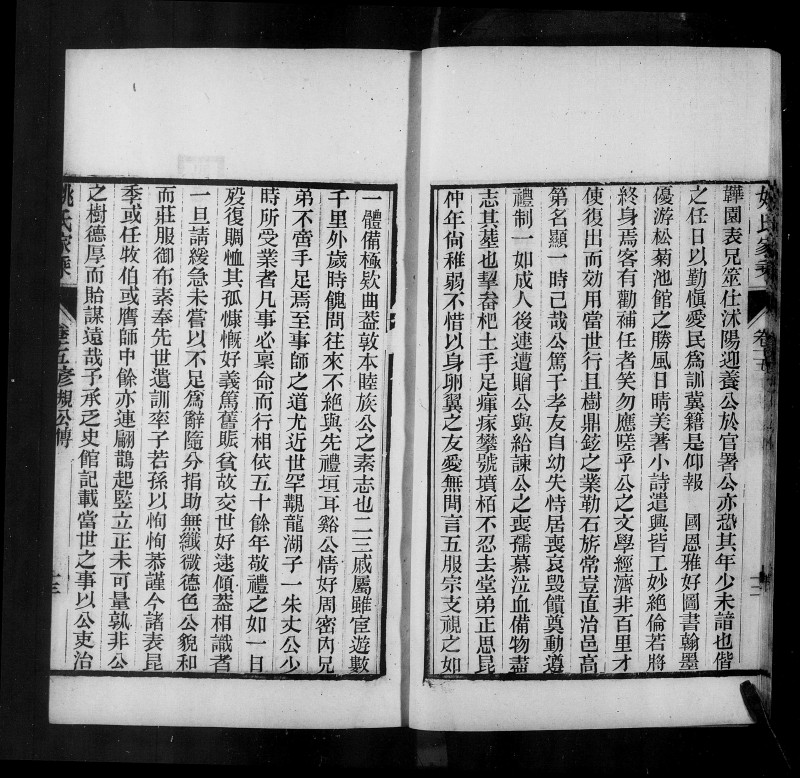 姚氏家乘
卷十五
十二
韡園表兄筮仕沭陽迎養公於官署公亦恐其年少未諳也偕
之任日以勤慎愛民爲訓冀籍是仰報 國恩雅好圖書翰墨
優游松菊池館之勝風日晴美著小詩遣興皆工妙絶倫若將
終身焉客有勸補任者笑勿應嗟乎公之文學經濟非百里才
使復出而効用當世行且樹鼎鉉之業勒石旂常豈直治邑高
第名顯一時己哉公篤于孝友自幼失恃居喪哀毀饋奠動遵
禮制一如成人後連遭贈公與給諫公之喪孺慕泣血備物盡
志其塟也挐畚杷土手足瘒瘃攀號墳栢不忍去堂弟正思昆
仲年尙稚弱不惜以身卵翼之友愛無閒言五服宗支視之如
一體備極欵曲葢敦本睦族公之素志也二三戚屬雖宦遊數
千里外歲時餽問往來不絶與先禮垣耳谿公情好周密丙兄
弟不啻手足焉至事師之道尤近世罕覯龍湖子一朱丈公少
時所受業者凡事必稟命而行相依五十餘年敬禮之如一日
歿復賙恤其孤慷慨好義篤舊賑貧故交世好逮傾葢相識者
一旦請緩急未嘗以不足爲辭隨分捐助無纖微德色公貌和
而莊服御布素奉先世遺訓率子若孫以恂恂恭謹今諸表昆
季或任牧伯或膺師中餘亦連翩鵲起竪立正未可量孰非公
之樹德厚而貽謀遠哉予承乏史館記載當世之事以公吏治
姚氏家乘
卷十五
彥槻公傳
十三